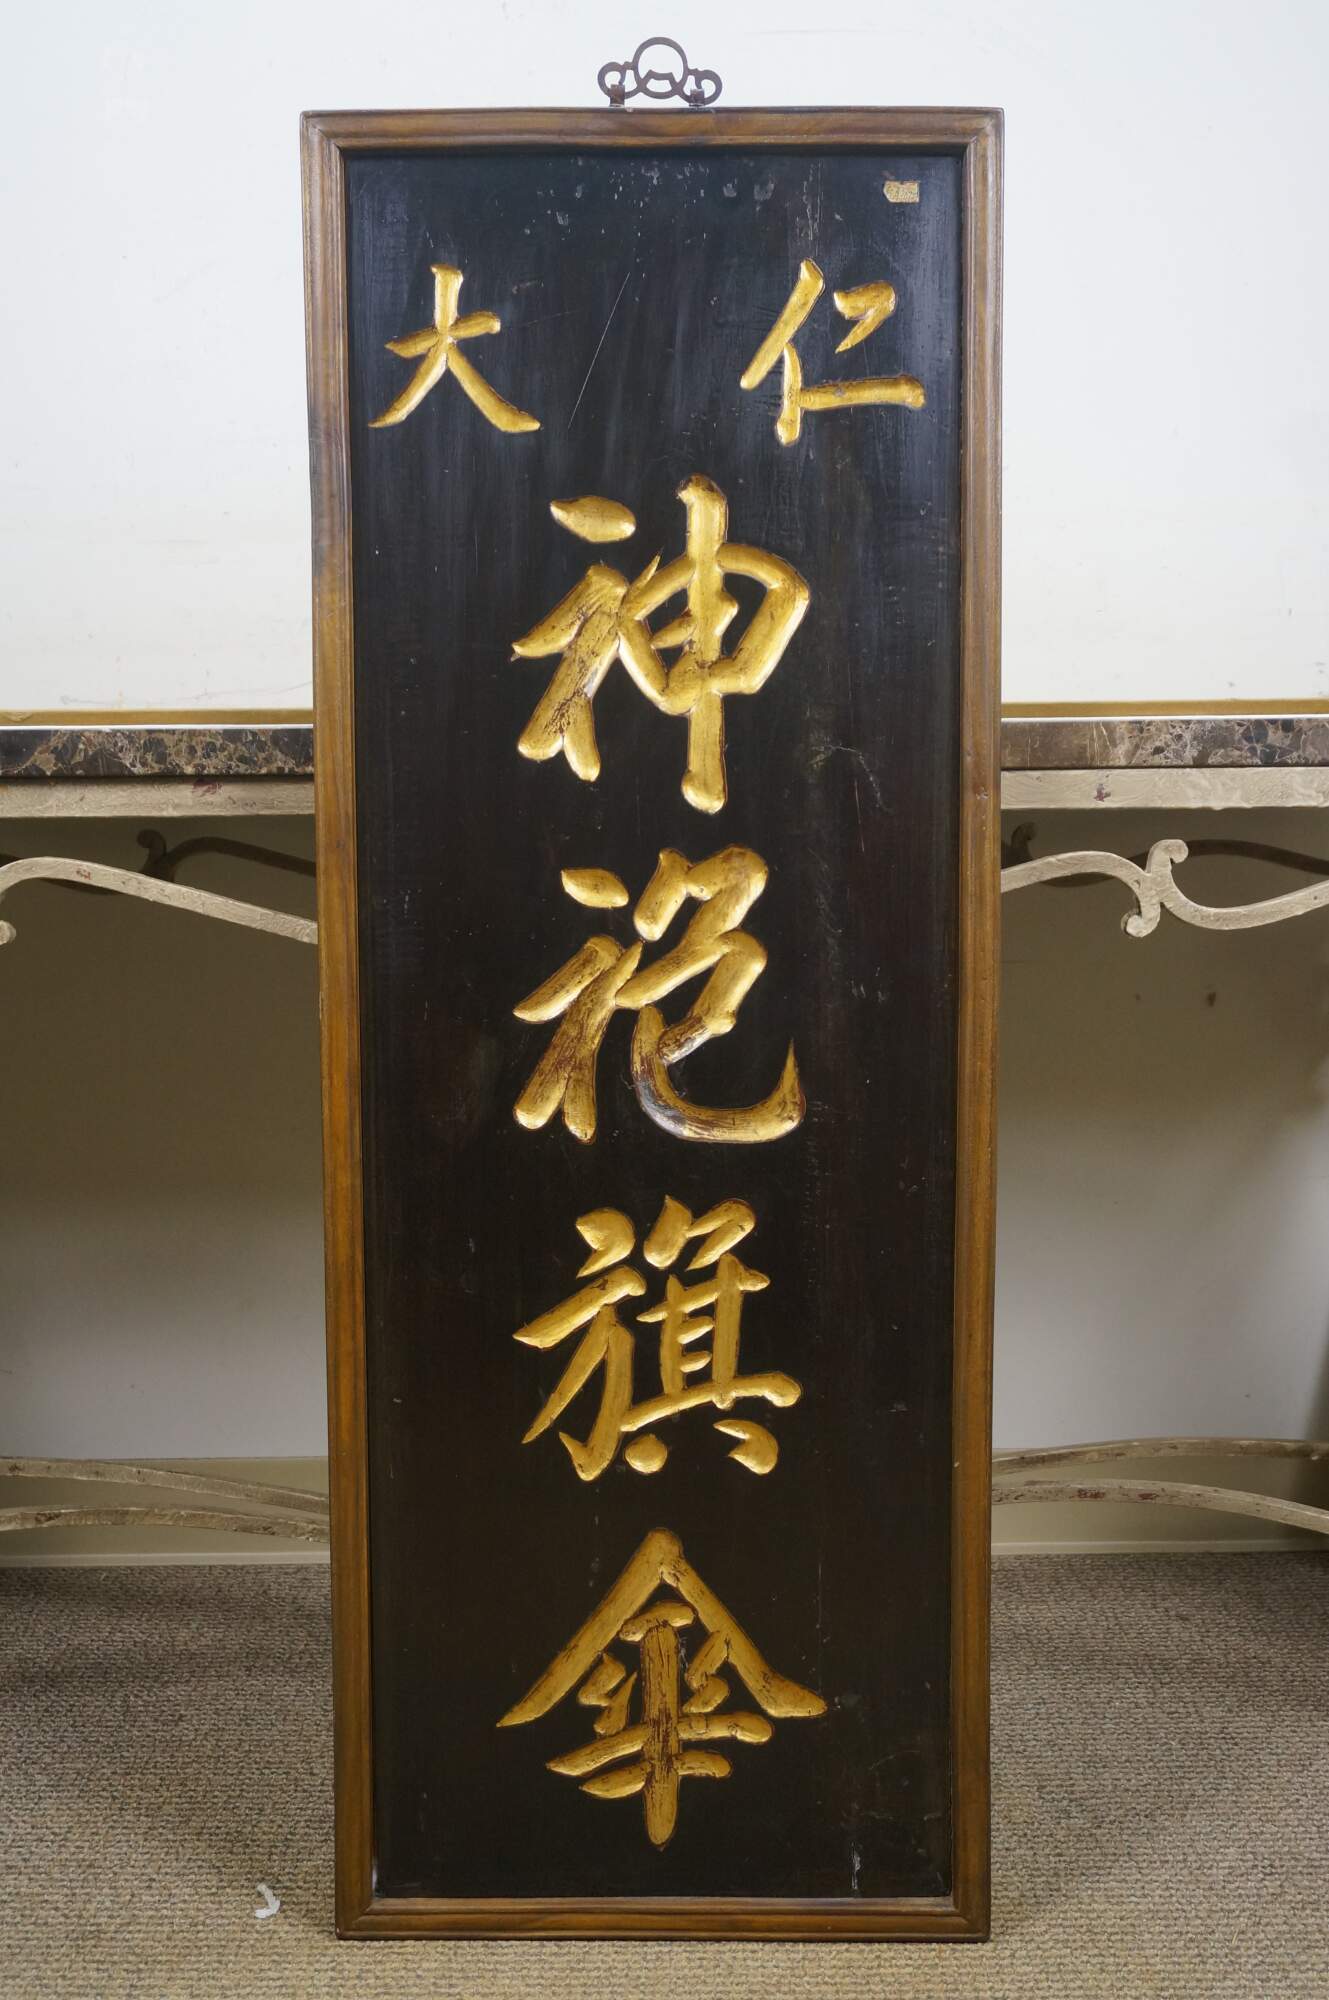 仁大
神袍旗傘